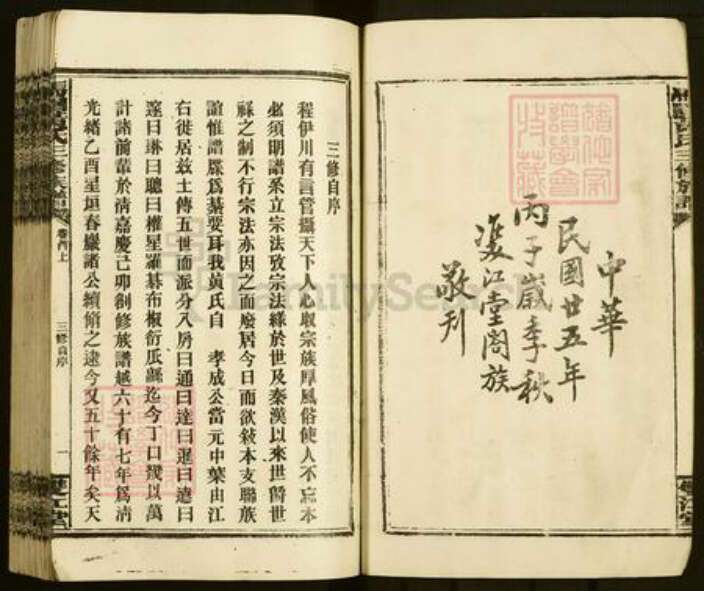 中華
民國廿五年
丙子歲季秋
雙江堂闔族
敬刊
譜學會
收藏
三修族譜
三修自序
程伊川有言管攝天下人心收宗族厚風俗使人不忘本
必須明譜系立宗法攷宗法緣於世及秦漢以來世爵世
祿之制不行宗法亦因之而廢居今日而欲敍本支聯族
誼惟譜牒爲綦要耳我黃氏自 孝成公當元中葉由江
右徙居茲土傳五世而派分八房曰通曰達曰暹曰遠曰
邃曰琳曰聰曰權星羅棊布椒衍瓜緜迄今丁口幾以萬
計諸前輩於淸嘉慶己卯創修族譜越六十有七年爲淸
光緒乙酉星垣春巖諸公續脩之逮今又五十餘年矣天
氏三修族譜
卷首上
三修自序
一
雙江堂
FamilySearch